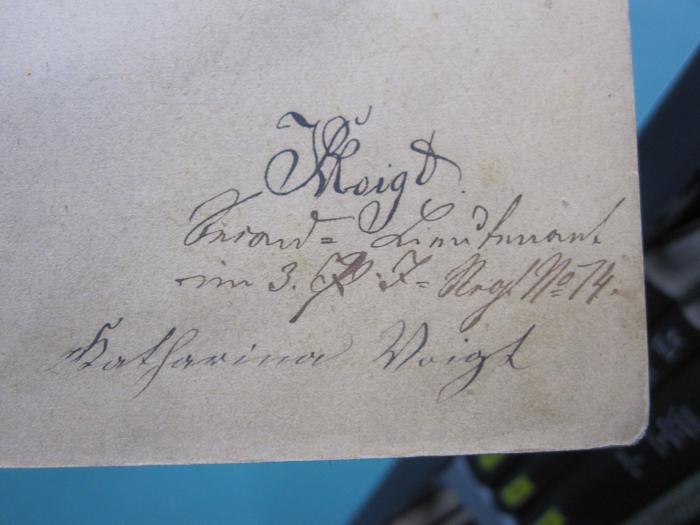 Voigt.
Second= Lieutenant
im 3. J= Regt No 74.
Katharina Voigt